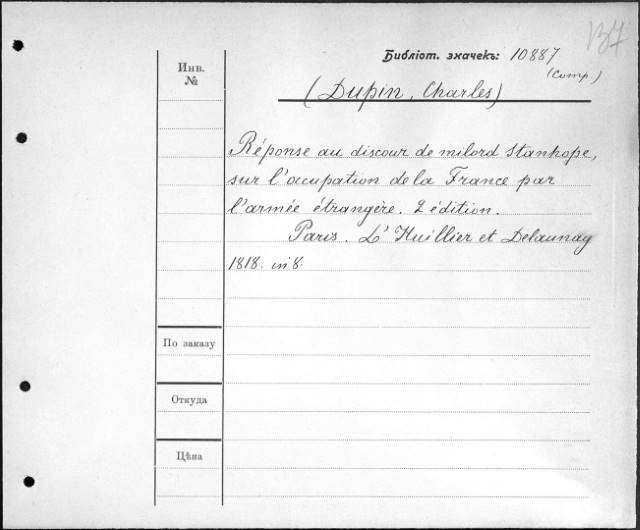 В7
Библіот. значекъ: 10887
(Comp.)
Инв.
№
(Dupin, Charles)
Réponse au discour de milord Stanhope,
sur l'acupation de la France par
l'armée étrangère. 2 édition.
Paris. L'Huillier et Delaunay
1818. in 8.
По заказу
Откуда
Цѣна